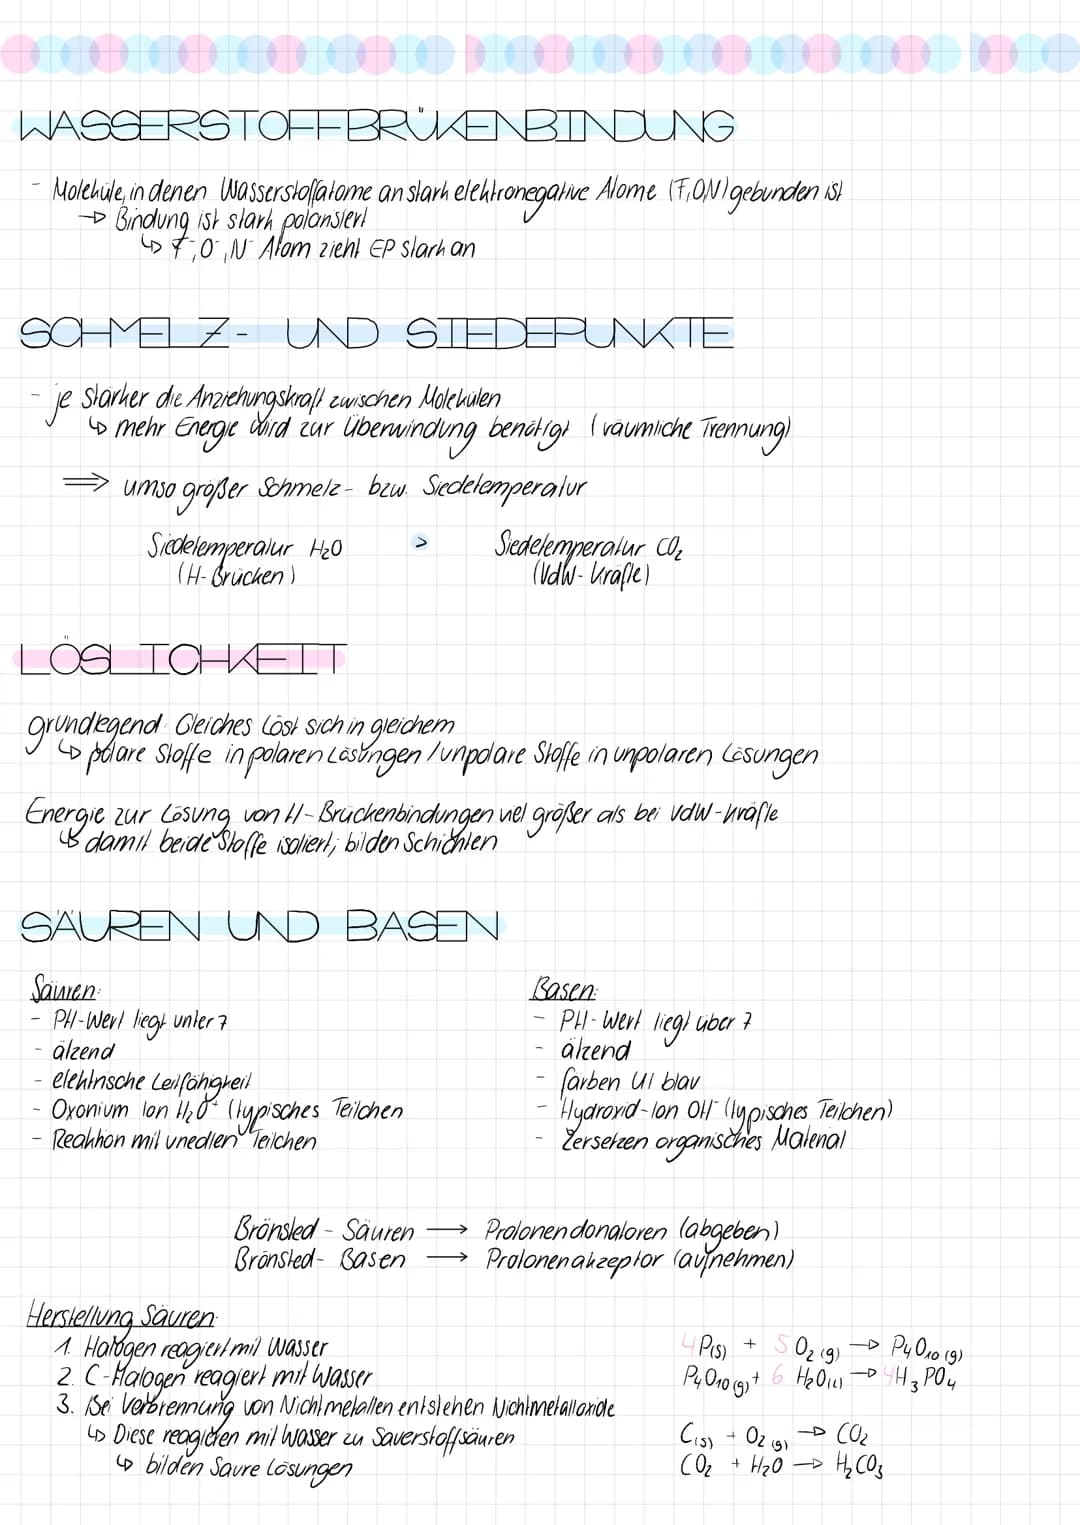 WASSERSTOFFBRÜKENBINDUNG
- Moleküle, in denen Wasserstoffatome an stark elektronegative Atome (F,O,N) gebunden ist
→ Bindung ist stark polarisiert
↳ F-, O-, N- Atom zieht EP stark an
SCHMELZ- UND SIEDEPUNKTE
- je stärker die Anziehungskraft zwischen Molekülen
↳ mehr Energie wird zur Überwindung benötigt (räumliche Trennung)
⇒ umso größer Schmelz- bzw. Siedetemperatur
Siedetemperatur H₂O > Siedetemperatur CO₂
(H-Brücken) (VdW-Kräfte)
LÖSLICHKEIT
grundlegend: Gleiches Löst sich in gleichem
↳ polare Stoffe in polaren Lösungen / unpolare Stoffe in unpolaren Lösungen
Energie zur Lösung von H-Brückenbindungen viel größer als bei VdW-Kräfte
↳ damit beide Stoffe isoliert; bilden Schichten
SÄUREN UND BASEN
Säuren:
- PH-Wert liegt unter 7
- ätzend
- elektrische Leitfähigkeit
- Oxonium Ion H₃O⁺ (typisches Teilchen
- Reaktion mit unedlen Teilchen
Basen:
- PH-Wert liegt über 7
- ätzend
- färben UI blau
- Hydroxid-Ion OH⁻ (typisches Teilchen)
- Zersetzen organisches Material
Brönsted - Säuren → Protonendonatoren (abgeben)
Brönsted - Basen → Protonenakzeptor (aufnehmen)
Herstellung Säuren:
1. Halogen reagiert mit Wasser
2. C-Halogen reagiert mit Wasser
3. Bei Verbrennung von Nichtmetallen entstehen Nichtmetalloxide
↳ Diese reagieren mit Wasser zu Sauerstoffsäuren
↳ bilden Saure Lösungen
4 P(s) + 5 O₂ (g) → P₄O₁₀ (g)
P₄O₁₀ (g) + 6 H₂O (l) → 4 H₃PO₄
C(s) + O₂ (g) → CO₂
CO₂ + H₂O → H₂CO₃